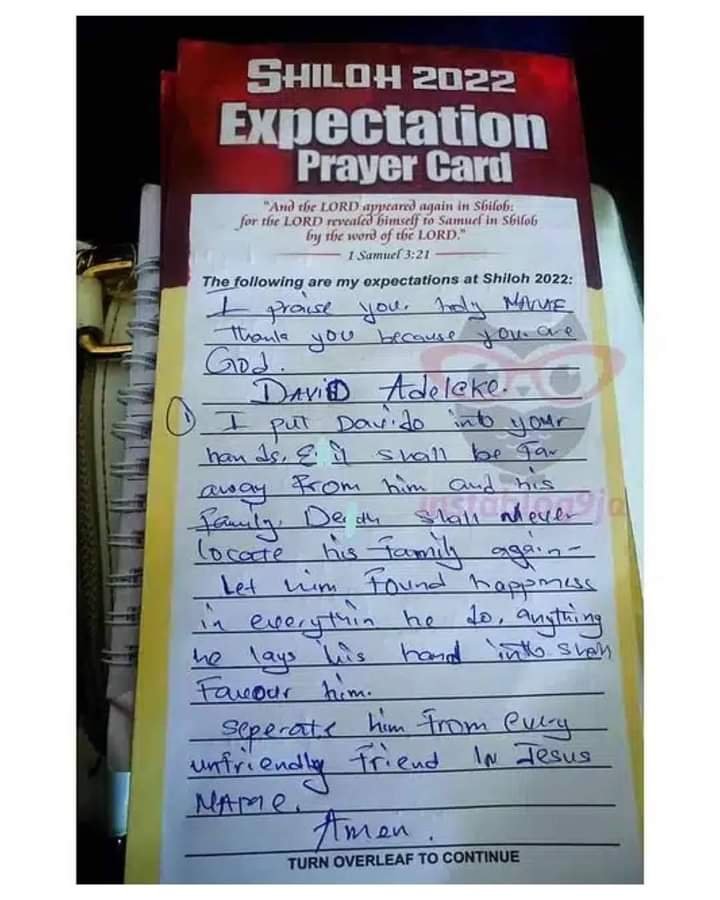 SHILOH 2022
Expectation
Prayer Card
"And the LORD appeared again in Shiloh:
for the LORD revealed himself to Samuel in Shiloh
by the word of the LORD."
1 Samuel 3:21
The following are my expectations at Shiloh 2022:
I praise you. holy NAME
Thank you because you are
God.
DAVID Adeleke.
1 I put Davido into your
hands, shall be far
away From him and his
family. Death shall Never
locate his family again-
Let him found happiness
in everythin he do, anything
he lays his hand into shall
Favour him.
Seperate him from every
unfriendly friend IN Jesus
NAME.
Amen.
TURN OVERLEAF TO CONTINUE
instablog9ja